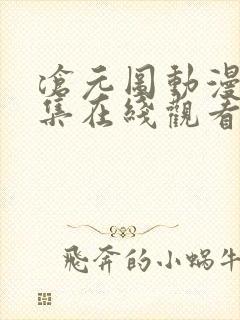 滄元圖動漫
集在綫觀看
飛奔的小蝸牛